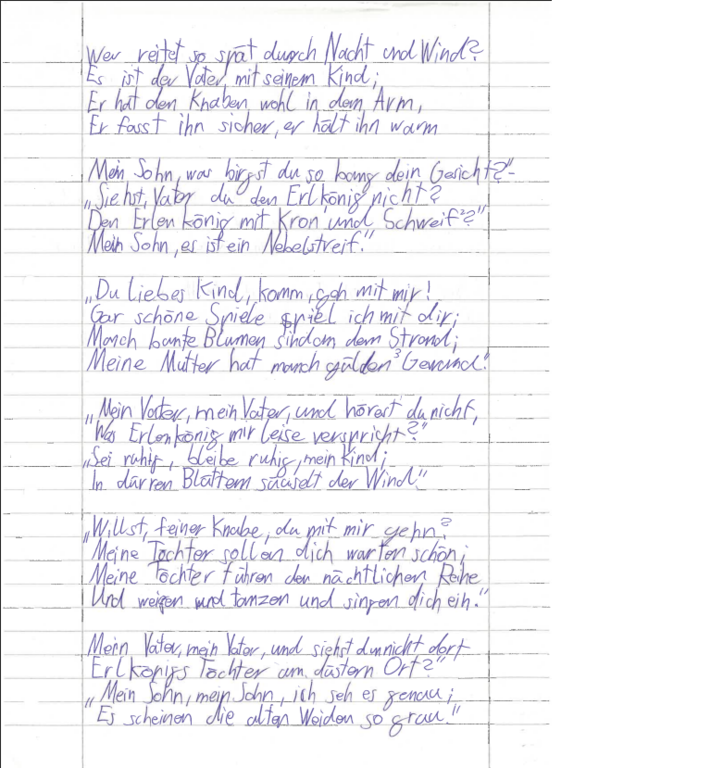 Wer reitet so spät durch Nacht und Wind?
Es ist der Vater mit seinem Kind;
Er hat den Knaben wohl in dem Arm,
Er fasst ihn sicher, er hält ihn warm
Mein Sohn, was birgst du so bang dein Gesicht?"-
„Siehst, Vater du den Erlkönig nicht?
Den Erlenkönig mit Kron und Schweif?"
Mein Sohn, es ist ein Nebelstreif."
„Du liebes Kind, komm, geh mit mir!
Gar schöne Spiele spiel ich mit dir;
Manch bunte Blumen sind am dem Strand;
Meine Mutter hat manch gülden Gewand."
„Mein Vater, mein Vater, und hörest du nicht,
Was Erlenkönig mir leise verspricht?"
„Sei ruhig, bleibe ruhig, mein Kind;
In dürren Blättern säuselt der Wind."
„Willst, feiner Knabe, du mit mir gehn?
Meine Töchter sollen dich warten schön;
Meine Töchter führen den nächtlichen Reihn
Und wiegen und tanzen und singen dich ein."
Mein Vater, mein Vater, und siehst du nicht dort
Erlkönigs Töchter am düstern Ort?"
„Mein Sohn, mein Sohn, ich seh es genau;
Es scheinen die alten Weiden so grau."